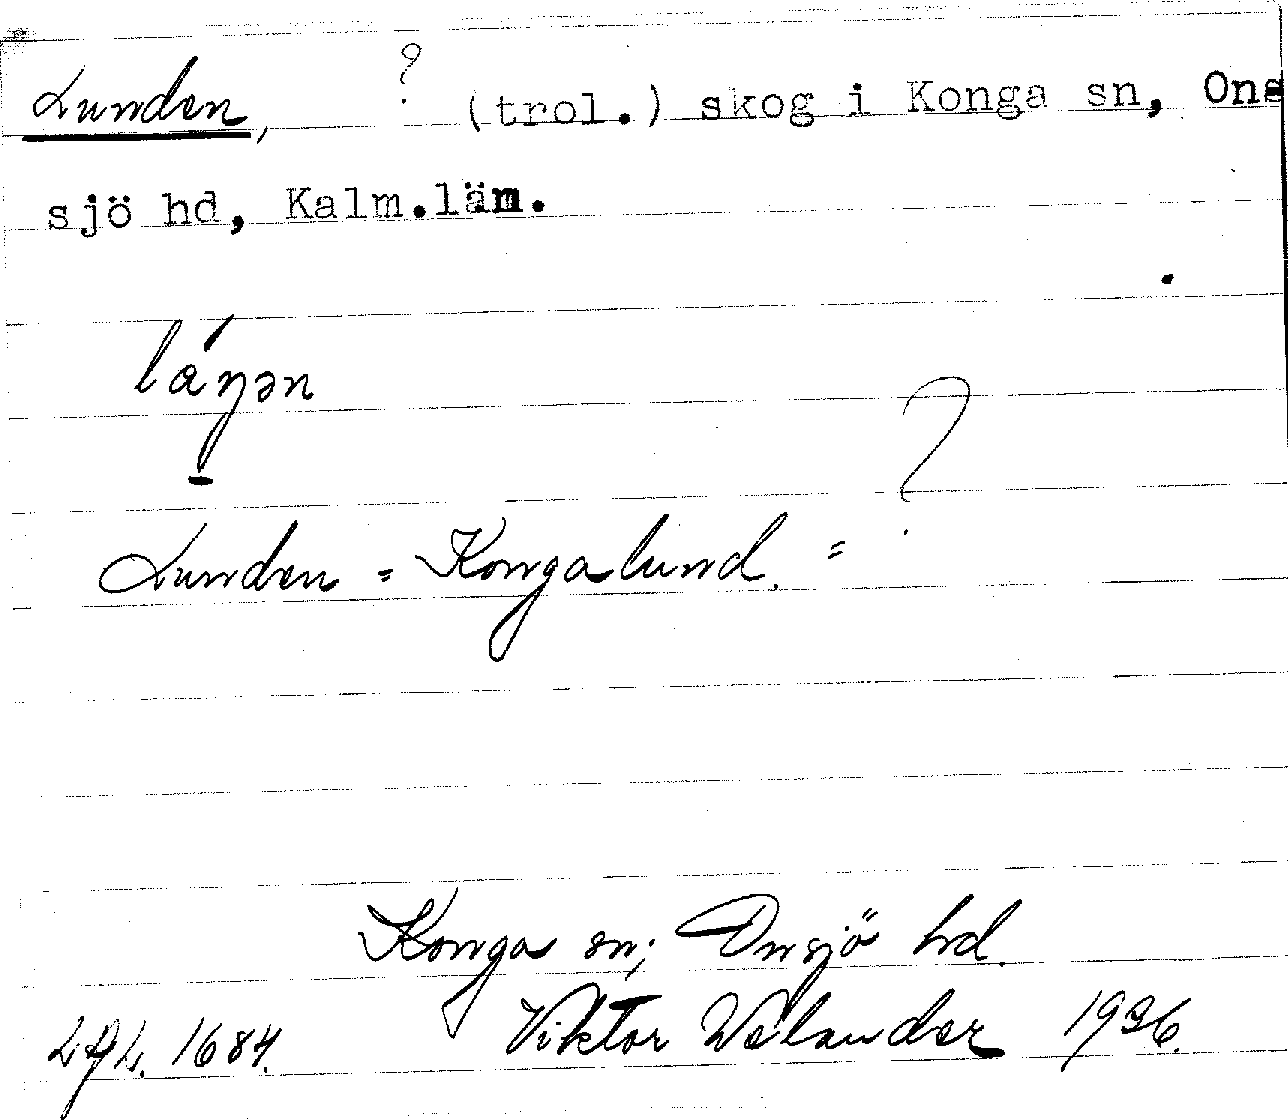 Lunden, ? (trol.) skog i Konga sn, Ons
sjö hd, Kalm.läm.
Lunden = Kongalund. = ?
Konga sn; Onsjö hd.
1684. Viktor Welander 1936.